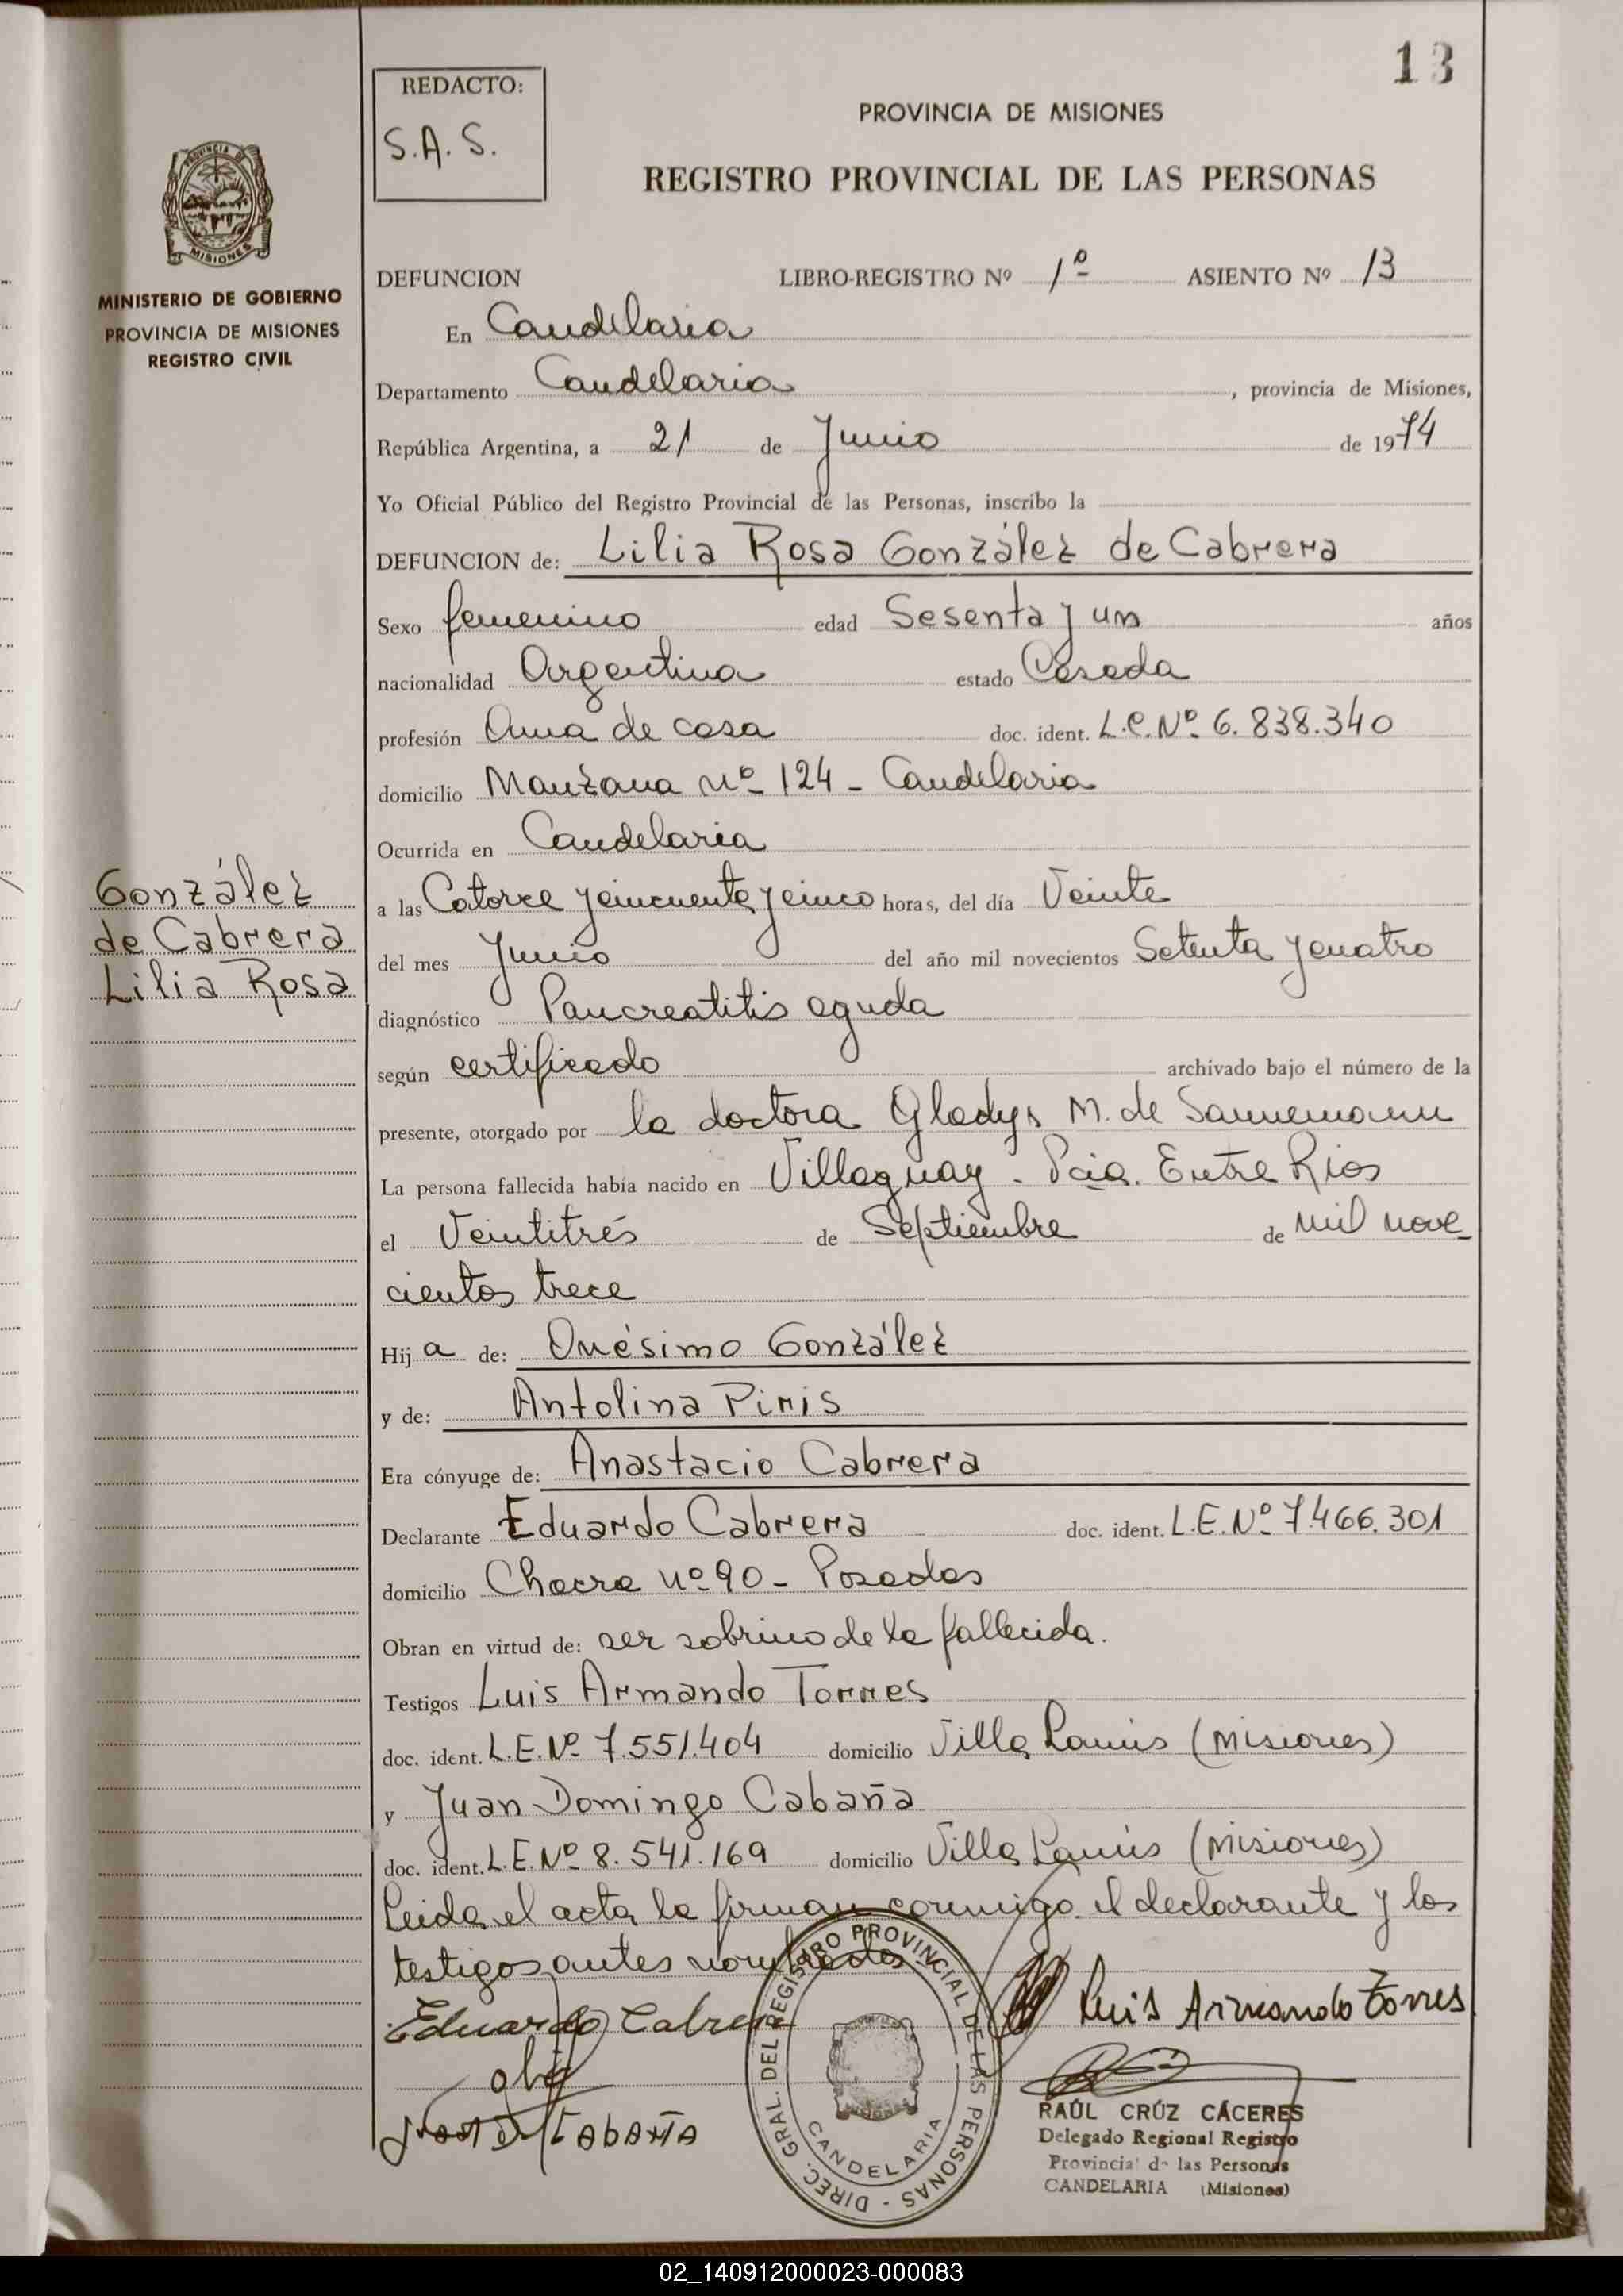 13
REDACTO:
S.A.S.
PROVINCIA DE MISIONES
REGISTRO PROVINCIAL DE LAS PERSONAS
PROVINCIA DE
MISIONES
MINISTERIO DE GOBIERNO
PROVINCIA DE MISIONES
REGISTRO CIVIL
DEFUNCION LIBRO-REGISTRO Nº 1º ASIENTO Nº 13
En Candelaria
Departamento Candelaria, provincia de Misiones,
República Argentina, a 21 de Junio de 1974
Yo Oficial Público del Registro Provincial de las Personas, inscribo la
DEFUNCION de: Lilia Rosa González de Cabrera
Sexo femenino edad Sesenta y un años
nacionalidad Argentina estado Casada
profesión Ama de casa doc. ident. L.C. Nº 6.838.340
domicilio Manzana nº 124 - Candelaria
Ocurrida en Candelaria
a las Catorce y cincuenta y cinco horas, del día Veinte
del mes Junio del año mil novecientos Setenta y cuatro
diagnóstico Pancreatitis aguda
según certificado archivado bajo el número de la
presente, otorgado por la doctora Gladys M. de Sannemann
La persona fallecida había nacido en Villaguay - Pcia. Entre Rios
el Veintitrés de Septiembre de mil nove-
cientos trece
Hija de: Onésimo González
y de: Antolina Piris
Era cónyuge de: Anastacio Cabrera
Declarante Eduardo Cabrera doc. ident. L.E. Nº 7.466.301
domicilio Chacra nº 90 - Posadas
Obran en virtud de: ser sobrino de la fallecida.
Testigos Luis Armando Torres
doc. ident. L.E. Nº 7.551.404 domicilio Villa Lanús (Misiones)
y Juan Domingo Cabaña
doc. ident. L.E. Nº 8.541.169 domicilio Villa Lanús (Misiones)
Leida el acta la firman conmigo el declarante y los
testigos antes nombrados
González
de Cabrera
Lilia Rosa
Eduardo Cabrera
Luis Armando Torres
Cabaña
DIREC. GRAL. DEL REGISTRO PROVINCIAL DE LAS PERSONAS -
CANDELARIA
RAÚL CRÚZ CÁCERES
Delegado Regional Registro
Provincial de las Personas
CANDELARIA (Misiones)
02_140912000023-000083